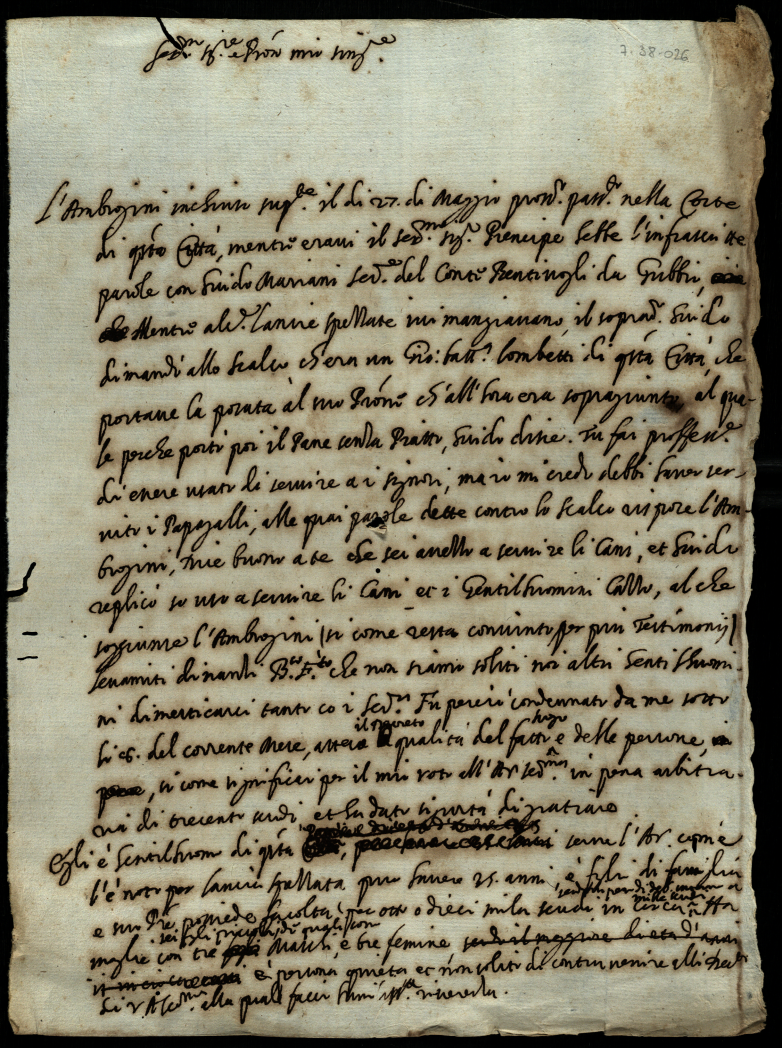 Ser.mo Sig.re e Pron mio sing.re
7-38-026
L'Ambrogini inchiuso sup.te il di 27. di Maggio pross.o pass.o nella Corte
di q̃sta Città, mentre eravi il ser.mo sig.r Prencipe hebbe l'infrascritte
parole con Guido Mariani ser.re del Conte Bentivogli da Gubbio,
Mentre alc.e lancie spezzate ivi mangiavano, il soprad.o Guido
dimandò allo scalco ch'era un Gio: batt.a lombetti di q̃sta Città, che
portasse la posata al suo Prone ch'all'hora era sopragiunto, al qua-
le perche portò poi il Pane senza Piatto, Guido disse. Tu fai profess.e
di essere usato di servire a i signori, ma io mi credo debbi haver ser-
vito i Papagalli, alle quai parole dette contro lo scalco rispose l'Am-
brogini, buono a te che sei avezzo a servire li Cani, et Guido
replicò io uso a servire li Cani et i Gentilhuomini, al che
soggiunse l'Ambrogini (si come resta convinto per più Testimonij)
levamiti dinanzi che non siamo soliti noi altri Gentilhuomi-
ni dimesticarci tanto co i ser.ri Fu perciò condennato da me sotto
li del corrente Mese, attesa il secreto qualità del fatto luogo e delle persone,
si come significai per il mio voto all'A. v. ser.ma in pena arbitra-
ria di trecento scudi, et ha dato sicurtà di
Egli è Gentilhuomo di q̃sta serve l'A.v. com'è
l'è noto per lancia spezzata può havere 25. anni, è figlio di famiglia
e suo Pre possiede facoltà per otto o dieci mila scudi, in circa, Ha
moglie con tre Maschi, e tre femine
è persona quieta et non solito di contravenire alli
di v. A. Ser.ma alla quale faccio humiliss.ma riverenza.